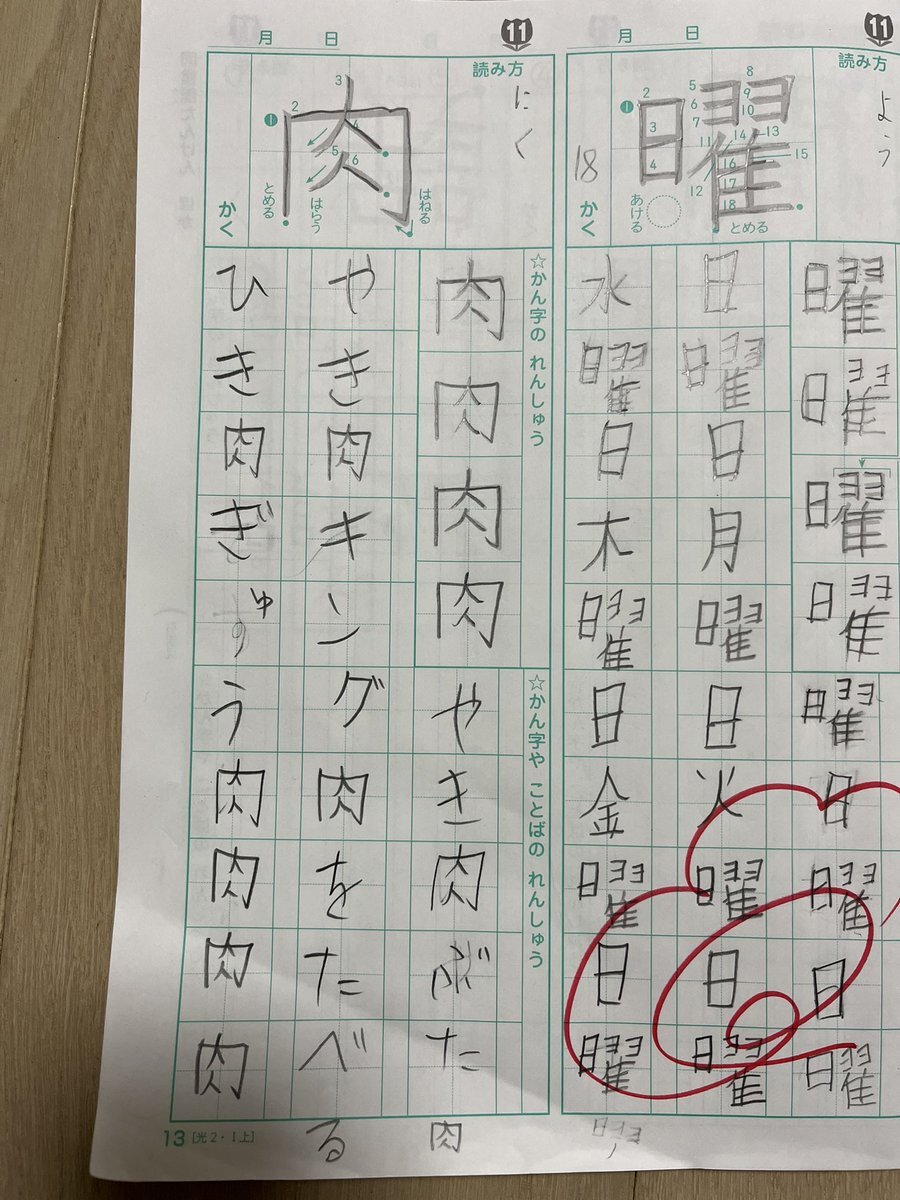 月 日 11
読み方
よう
曜
1 2 3 4 5 6 7 8 9 10 11 12 13 14 15 16 17 18
あける
とめる
かく
18
曜曜曜曜
曜日曜日曜
日曜日月曜日火曜日曜
水曜日木曜日金曜日曜
月 日 11
読み方
にく
肉
1 2 3 4 5 6
とめる
はらう
はねる
かく
☆かん字の れんしゅう
肉肉肉肉
☆かん字や ことばの れんしゅう
やき肉ぶた肉
やき肉キング肉をたべる
ひき肉ぎゅう肉肉肉肉
13 [光2・1上]